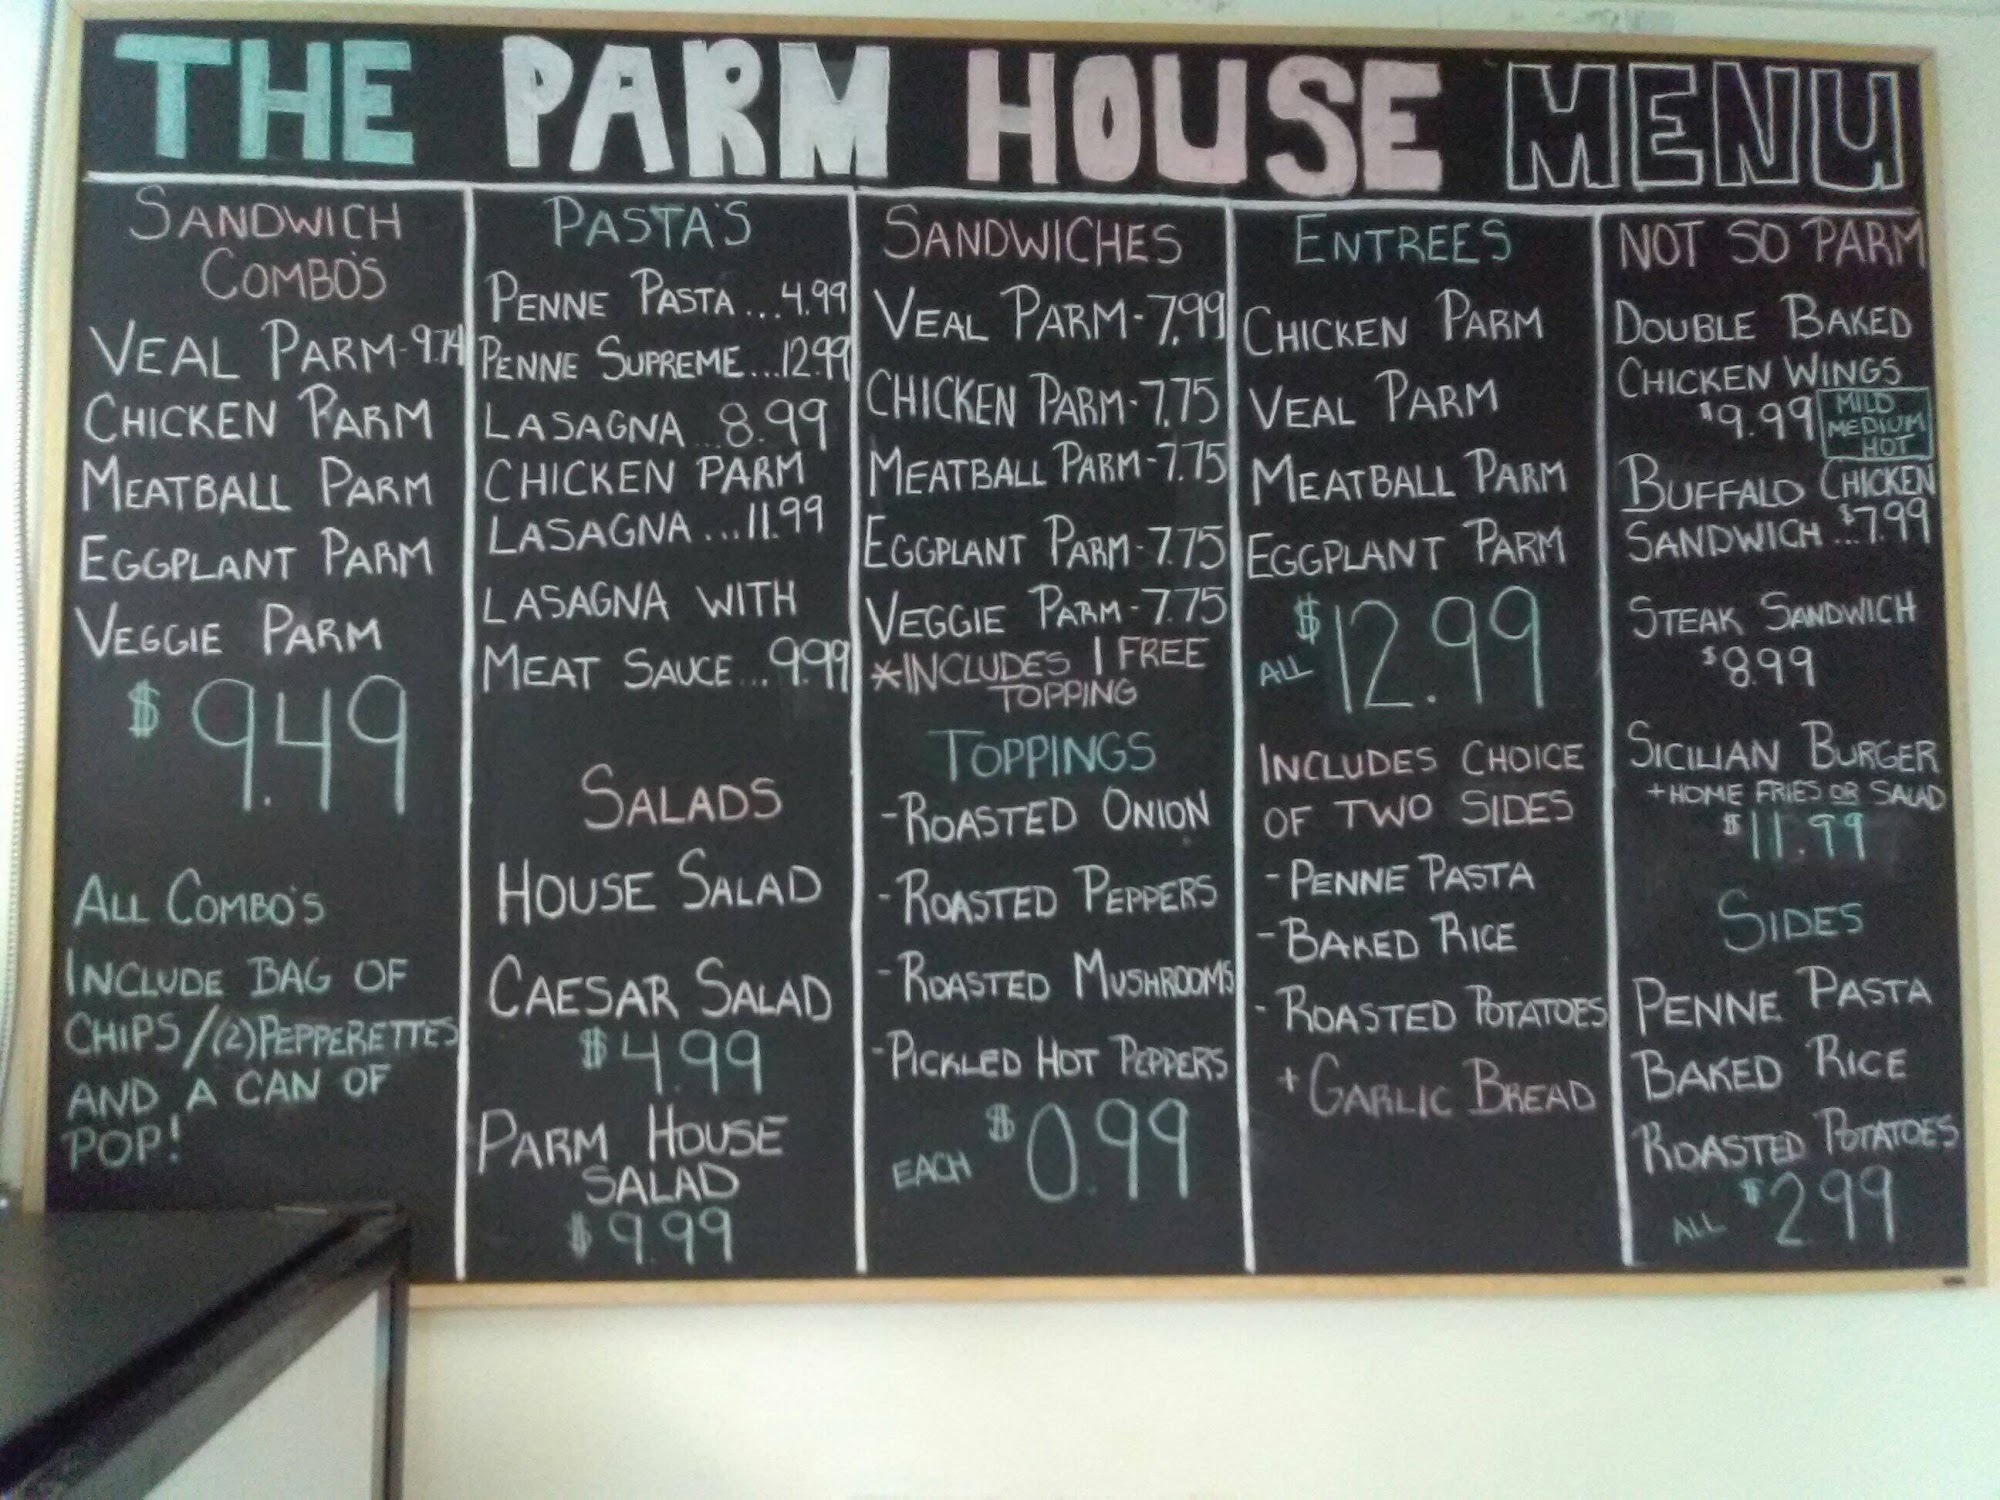 THE PARM HOUSE MENU
SANDWICH
COMBO'S
VEAL PARM-9.74
CHICKEN PARM
MEATBALL PARM
EGGPLANT PARM
VEGGIE PARM
$9.49
ALL COMBO'S
INCLUDE BAG OF
CHIPS/(2)PEPPERETTES
AND A CAN OF
POP!
PASTA'S
PENNE PASTA...4.99
PENNE SUPREME...12.99
LASAGNA...8.99
CHICKEN PARM
LASAGNA...11.99
LASAGNA WITH
MEAT SAUCE...9.99
SALADS
HOUSE SALAD
CAESAR SALAD
$4.99
PARM HOUSE
SALAD
$9.99
SANDWICHES
VEAL PARM-7.99
CHICKEN PARM-7.75
MEATBALL PARM-7.75
EGGPLANT PARM-7.75
VEGGIE PARM-7.75
*INCLUDES 1 FREE
TOPPING
TOPPINGS
-ROASTED ONION
-ROASTED PEPPERS
-ROASTED MUSHROOMS
-PICKLED HOT PEPPERS
EACH $0.99
ENTREES
CHICKEN PARM
VEAL PARM
MEATBALL PARM
EGGPLANT PARM
ALL $12.99
INCLUDES CHOICE
OF TWO SIDES
-PENNE PASTA
-BAKED RICE
-ROASTED POTATOES
+GARLIC BREAD
NOT SO PARM
DOUBLE BAKED
CHICKEN WINGS
$9.99
MILD
MEDIUM
HOT
BUFFALO CHICKEN
SANDWICH...$7.99
STEAK SANDWICH
$8.99
SICILIAN BURGER
+HOME FRIES OR SALAD
$11.99
SIDES
PENNE PASTA
BAKED RICE
ROASTED POTATOES
ALL $2.99